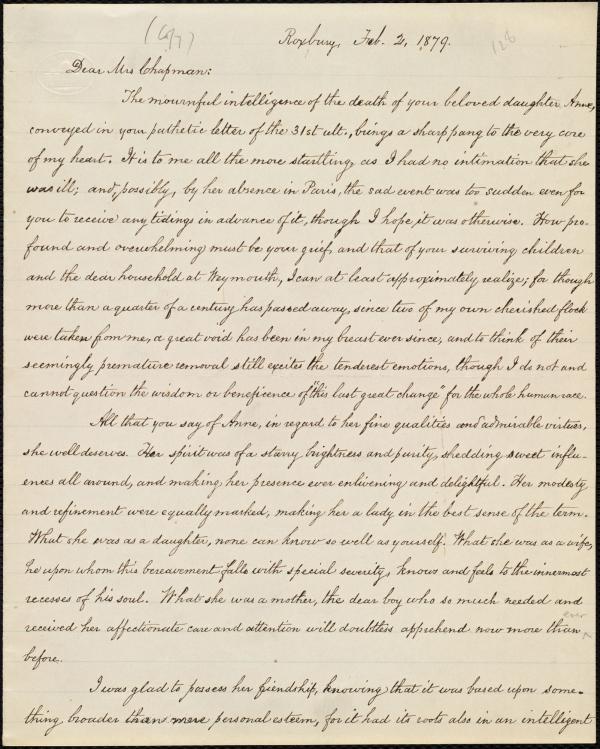 (Copy)
Roxbury, Feb. 2, 1879.
128
Dear Mrs Chapman:
The mournful intelligence of the death of your beloved daughter Anne,
conveyed in your pathetic letter of the 31st ult., brings a sharp pang to the very core
of my heart. It is to me all the more startling, as I had no intimation that she
was ill; and, possibly, by her absence in Paris, the sad event was too sudden even for
you to receive any tidings in advance of it, though I hope it was otherwise. How pro-
found and overwhelming must be your grief, and that of your surviving children
and the dear household at Weymouth, I can at least approximately realize; for though
more than a quarter of a century has passed away, since two of my own cherished flock
were taken from me, a great void has been in my breast ever since, and to think of their
seemingly premature removal still excites the tenderest emotions, though I do not and
cannot question the wisdom or beneficence of "this last great change" for the whole human race.
All that you say of Anne, in regard to her fine qualities and admirable virtues,
she well deserves. Her spirit was of a starry brightness and purity, shedding sweet influ-
ences all around, and making her presence ever enlivening and delightful. Her modesty
and refinement were equally marked, making her a lady in the best sense of the term.
What she was as a daughter, none can know so well as yourself. What she was as a wife,
he upon whom this bereavement falls with special severity, knows and feels to the innermost
recesses of his soul. What she was a mother, the dear boy who so much needed and
received her affectionate care and attention will doubtless apprehend now more than
ever
before.
I was glad to possess her friendship, knowing that it was based upon some-
thing broader than mere personal esteem, for it had its roots also in an intelligent